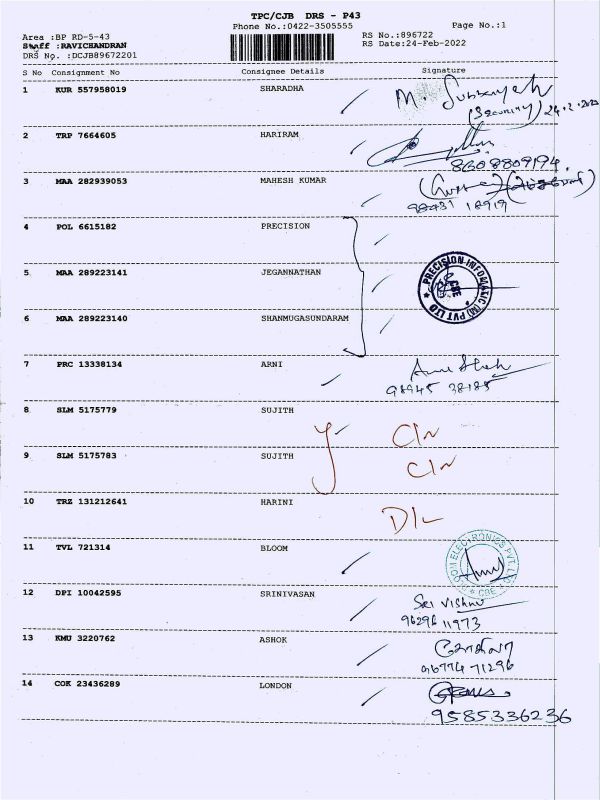 TPC/CJB DRS - P43
Phone No.:0422-3505555 Page No.:1
Area :BP RD-5-43 RS No.:896722
Staff :RAVICHANDRAN RS Date:24-Feb-2022
DRS No. :DCJB89672201
S No Consignment No Consignee Details Signature
1 KUR 557958019 SHARADHA M. Subbaiyah
(Security) 24.2.2022
2 TRP 7664605 HARIRAM
8608809194.
3 MAA 282939053 MAHESH KUMAR
98431 18919
4 POL 6615182 PRECISION
5 MAA 289223141 JEGANNATHAN
PRECISION INFOMATIC (M) PVT LTD
CBE
6 MAA 289223140 SHANMUGASUNDARAM
7 PRC 13338134 ARNI
98945 38185
8 SLM 5175779 SUJITH
9 SLM 5175783 SUJITH
10 TRZ 131212641 HARINI
11 TVL 721314 BLOOM
ELECTRONICS PVT. LTD
CBE
12 DPI 10042595 SRINIVASAN Sri Vishnu
96296 11973
13 KMU 3220762 ASHOK
96774 71296
14 COK 23436289 LONDON
9585336236